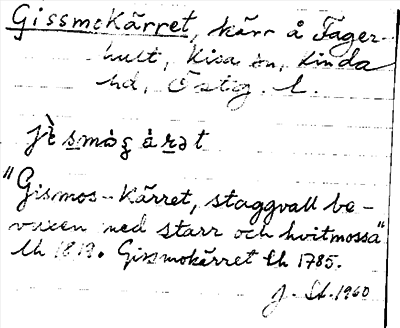 Gissmokärret, kärr å Fager-
hult, Kisa sn, Kinda
hd, Östg. l.
"Gismos-Kärret, staggvall be-
vuxen med starr och hvitmossa"
Lh 1819. Gissmokärret Lh 1785.
J. St. 1960